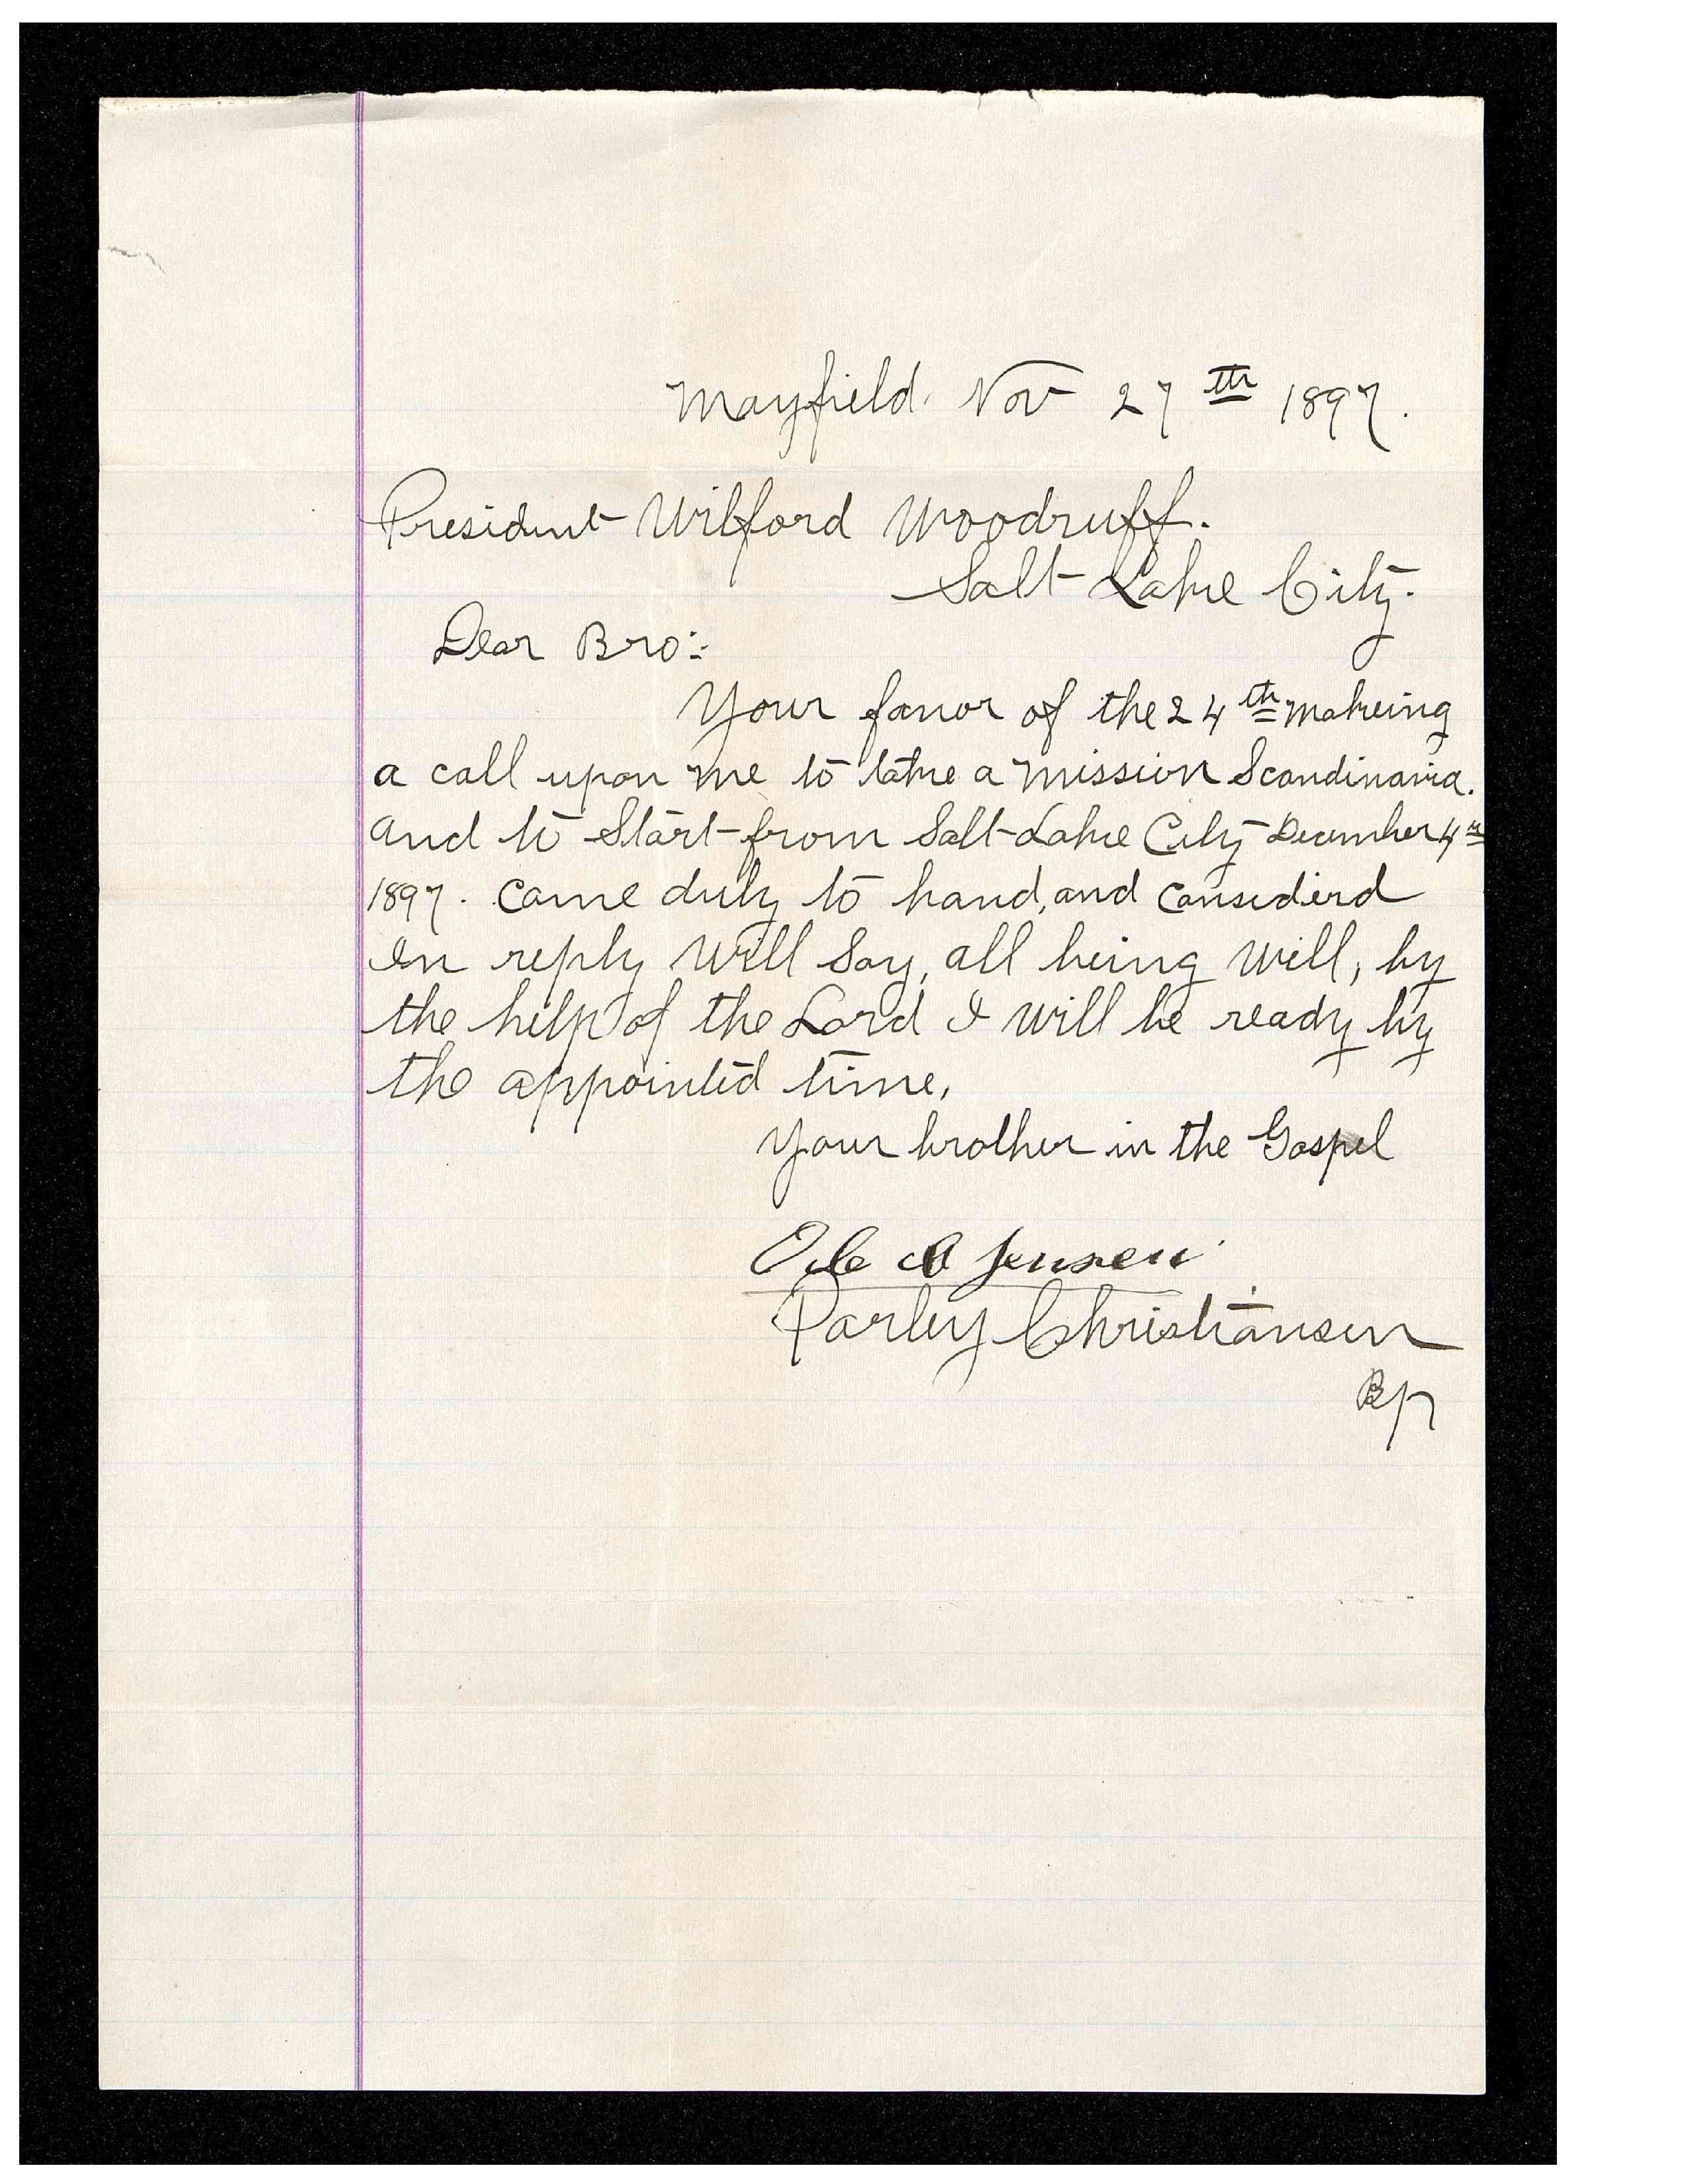 Mayfield. Nov 27th 1897.
President Wilford Woodruff.
Salt Lake City.
Dear Bro:-
Your favor of the 24th makeing
a call upon me to take a mission Scandinavia.
and to Start from Salt Lake City December 4th
1897. Came duly to hand, and Considerd
In reply Will Say, all being Will, by
the help of the Lord I will be ready by
the appointed time,
Your brother in the Gospel
Ole A Jensen
Parley Christiansen
Bp